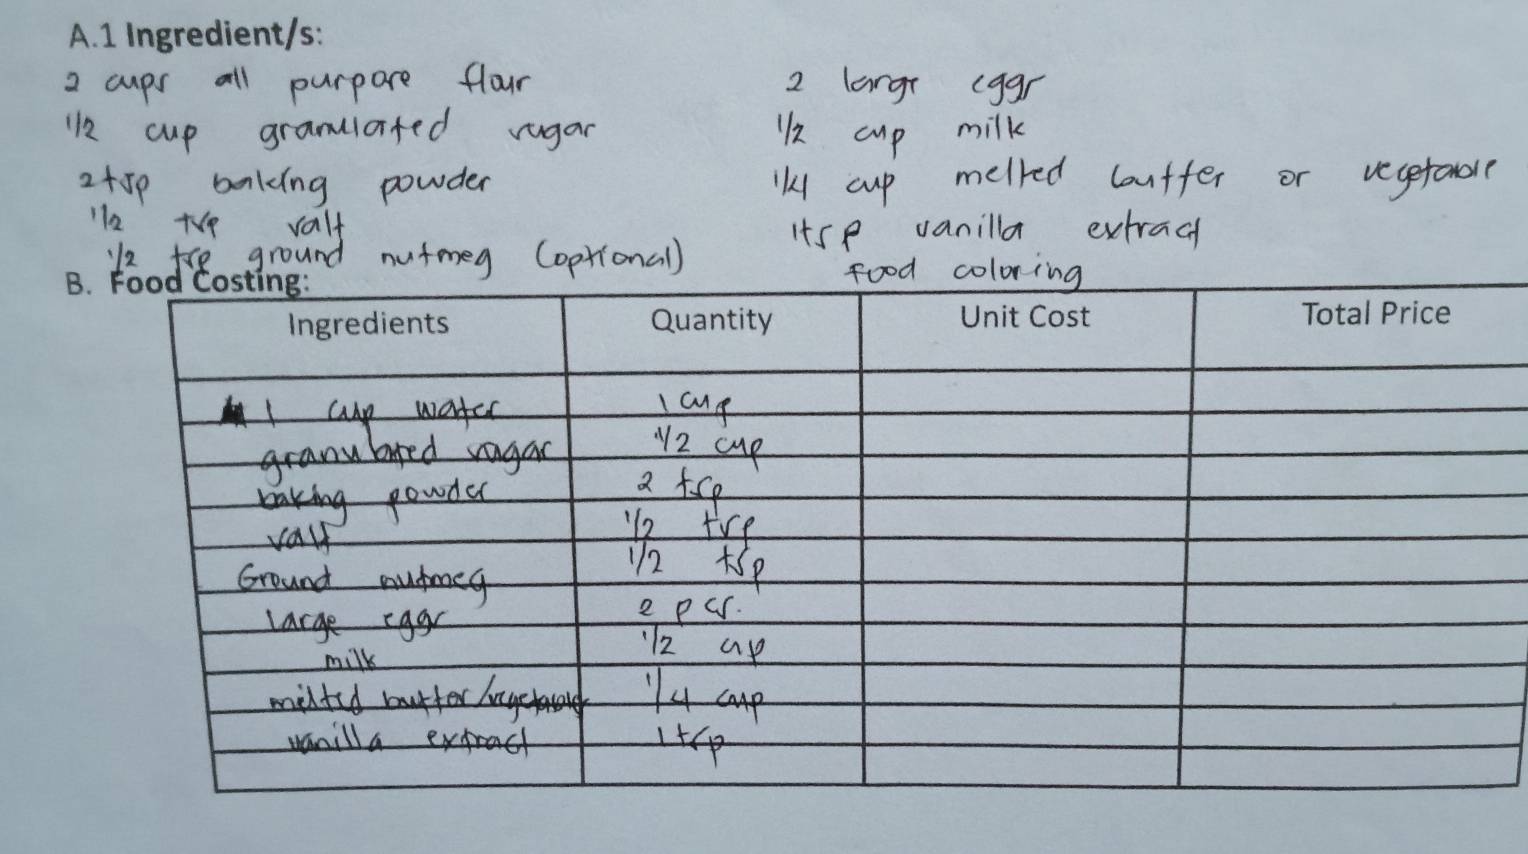 A.1 Ingredient/s:
2 cups all purpose flour 2 large eggs
1/2 cup granulated sugar 1/2 cup milk
2tsp baking powder 1/4 cup melted butter or vegetable
1/2 tsp salt 1tsp vanilla extract
1/2 tsp ground nutmeg (optional) food coloring
B. Food Costing:
Ingredients Quantity Unit Cost Total Price
1 cup water 1 cup
granulated sugar 1/2 cup
baking powder 2 tsp
salt 1/2 tsp
Ground nutmeg 1/2 tsp
large eggs 2 pcs.
milk 1/2 cup
melted butter/vegetable 1/4 cup
vanilla extract 1tsp